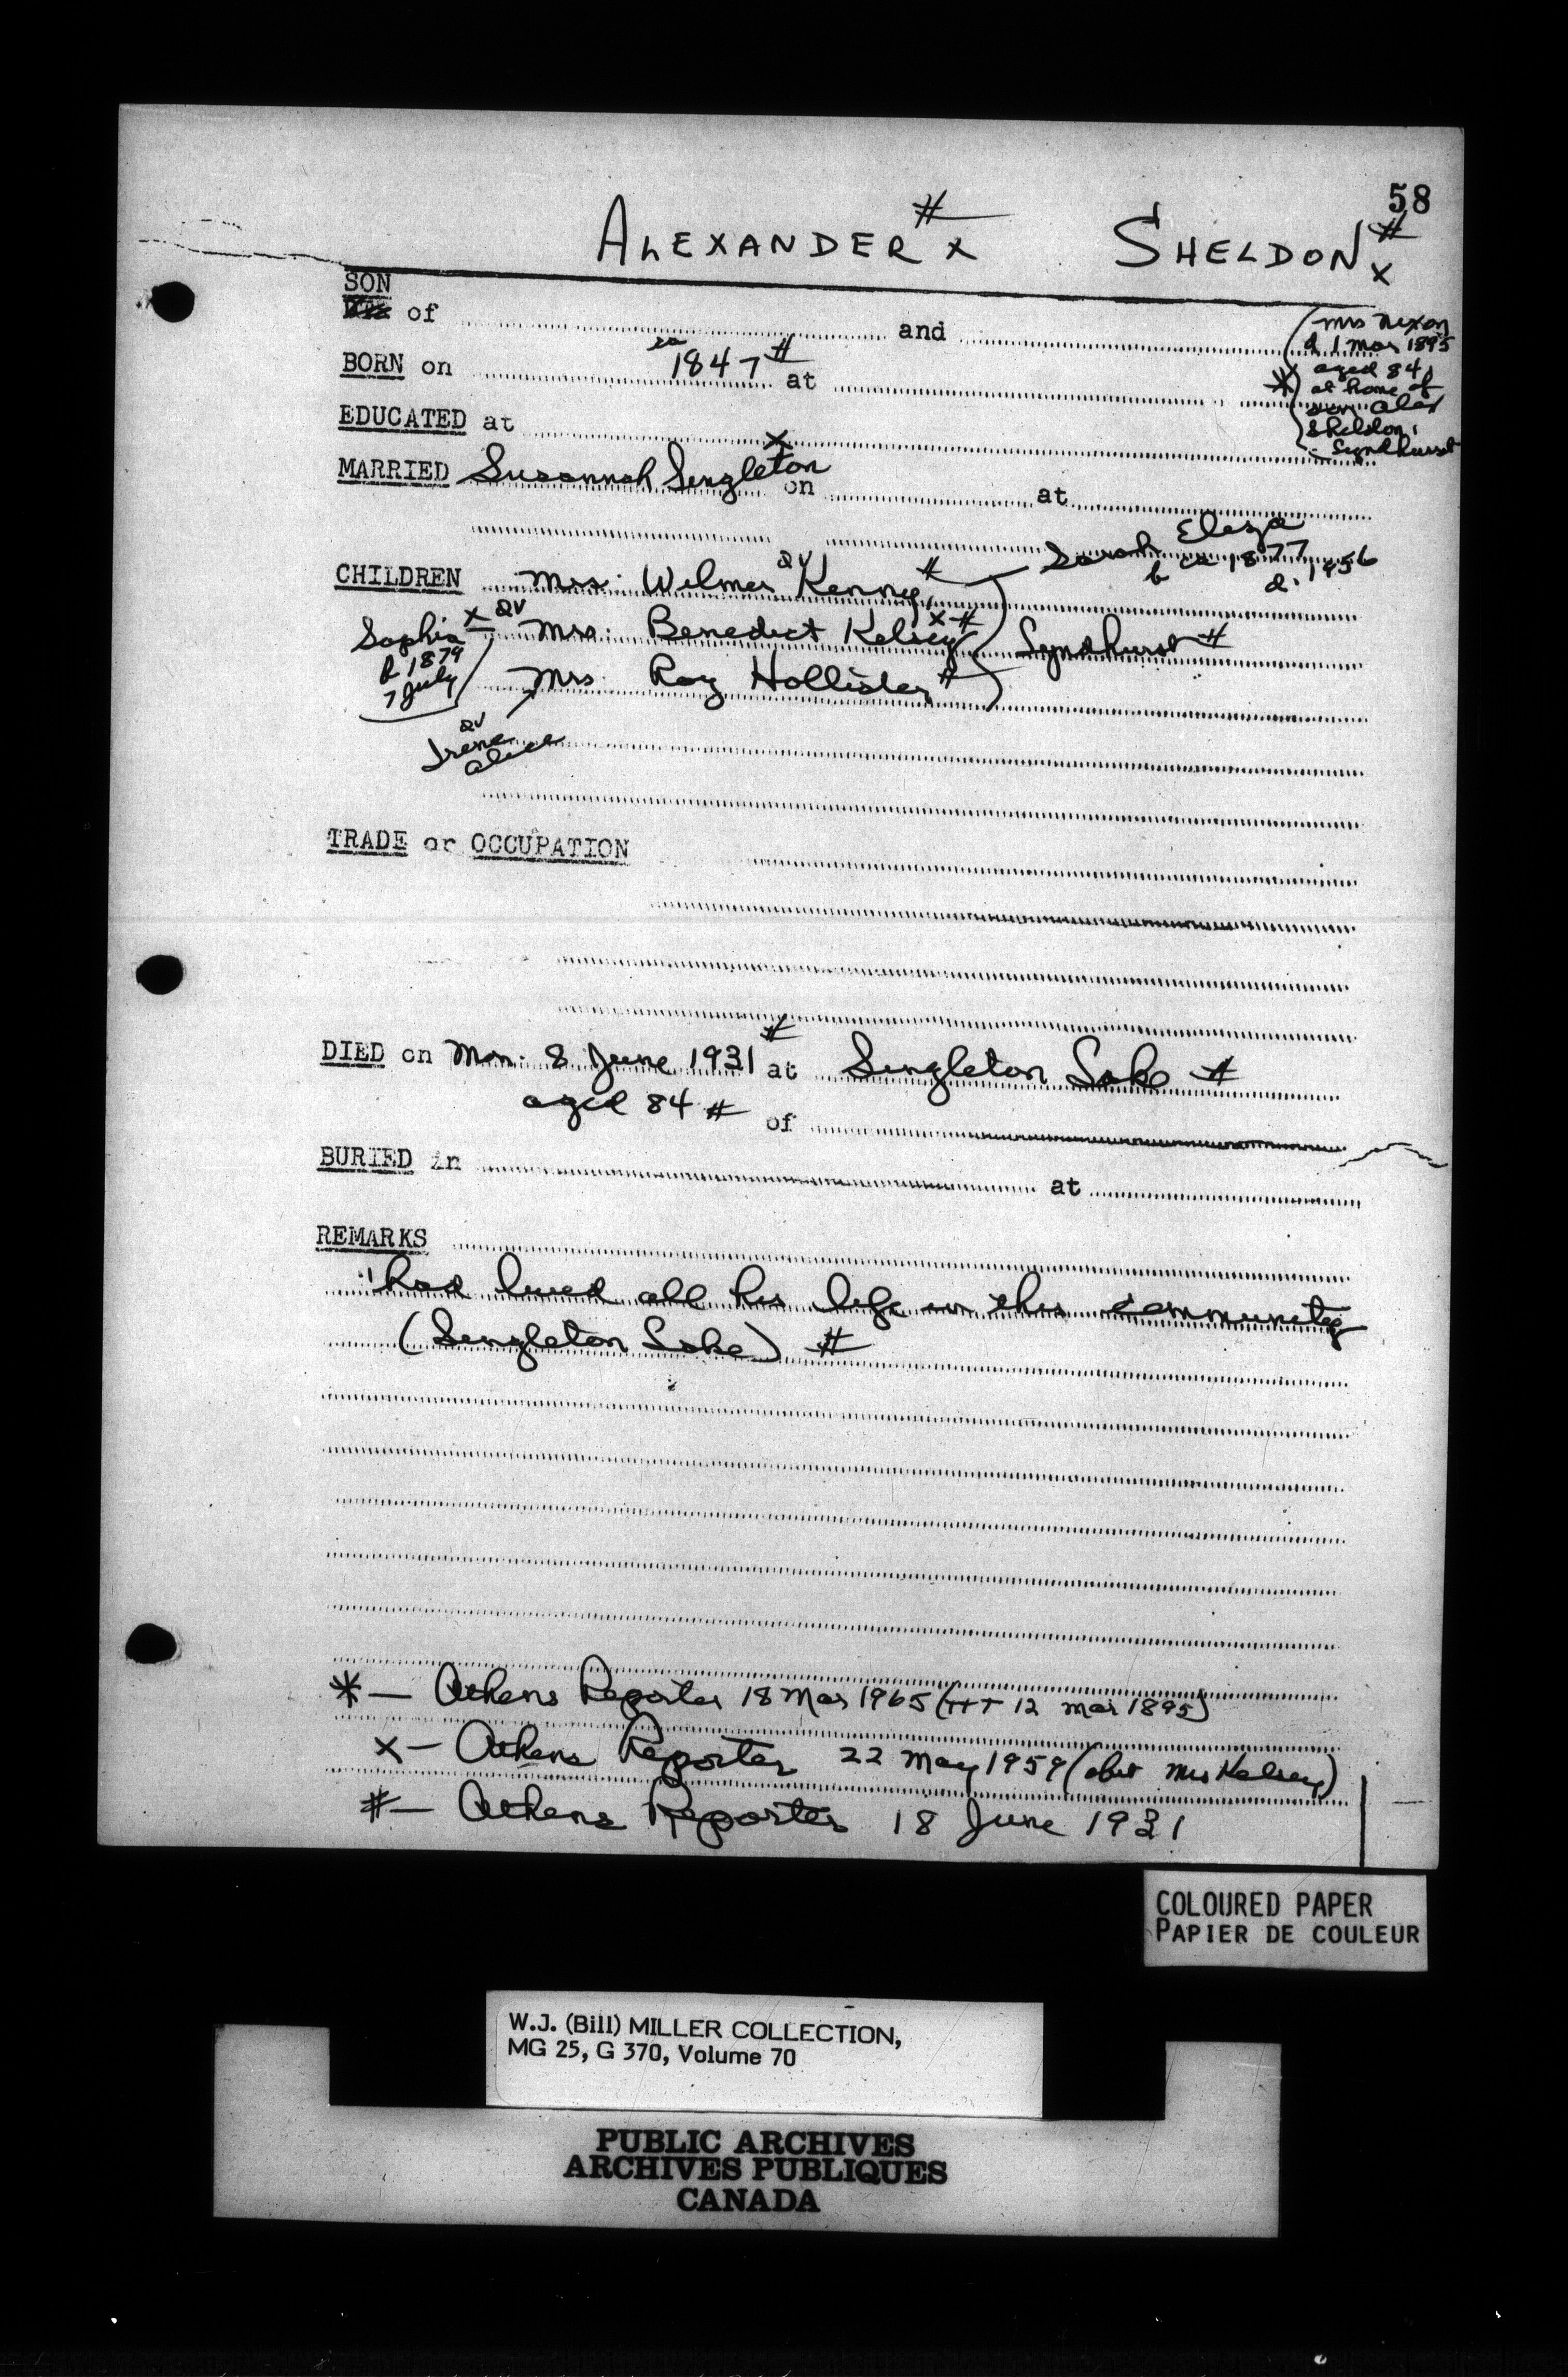 58
ALEXANDER # x SHELDON # x
SON
of and
Mrs Nixon
d 1 Mar 1895
aged 84
at home of
son Alex
Sheldon,
Lyndhurst
*
BORN on ca 1847 # at
EDUCATED at
MARRIED Susannah Singleton x on at
Sarah Eliza
b ca 1877
d. 1956
CHILDREN Mrs. Wilmer QV Kenney, #
Sophia x QV Mrs. Benedict Kelsey x-# Lyndhurst #
b 1879
7 July
Mrs. Roy Hollister #
QV
Irene
Alice
TRADE or OCCUPATION
DIED on Mon. 8 June 1931 # at Singleton Lake #
aged 84 # of
BURIED in at
REMARKS
"had lived all his life in this community
(Singleton Lake) #
* — Athens Reporter 18 Mar 1965 (TTT 12 Mar 1895)
x — Athens Reporter 22 May 1959 (obit Mrs Kelsey)
# — Athens Reporter 18 June 1931
COLOURED PAPER
PAPIER DE COULEUR
W.J. (Bill) MILLER COLLECTION,
MG 25, G 370, Volume 70
PUBLIC ARCHIVES
ARCHIVES PUBLIQUES
CANADA